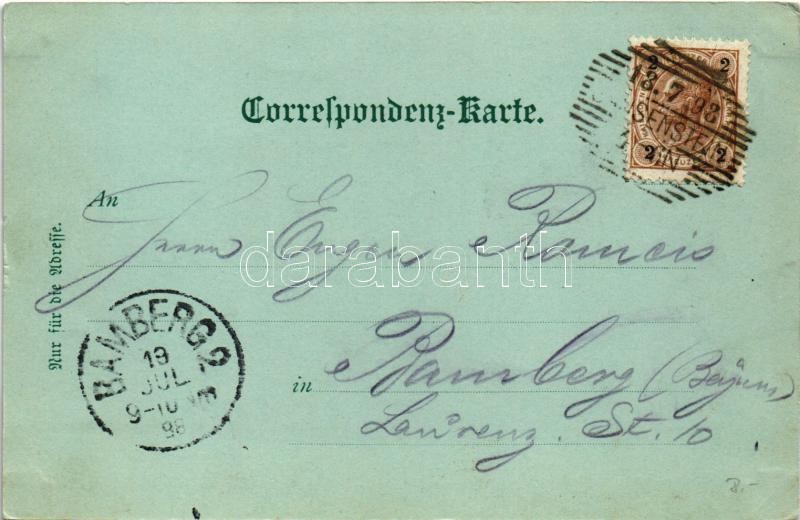 Correspondenz-Karte.
2 2
18.7.98
2 2
An
Herrn Eugen Ramcis
Nur für die Adresse.
darabanth
BAMBERG.2
19
JUL
9-10 VM
98
in
Bamberg (Bayern)
Laurenz. St. 10
8.-